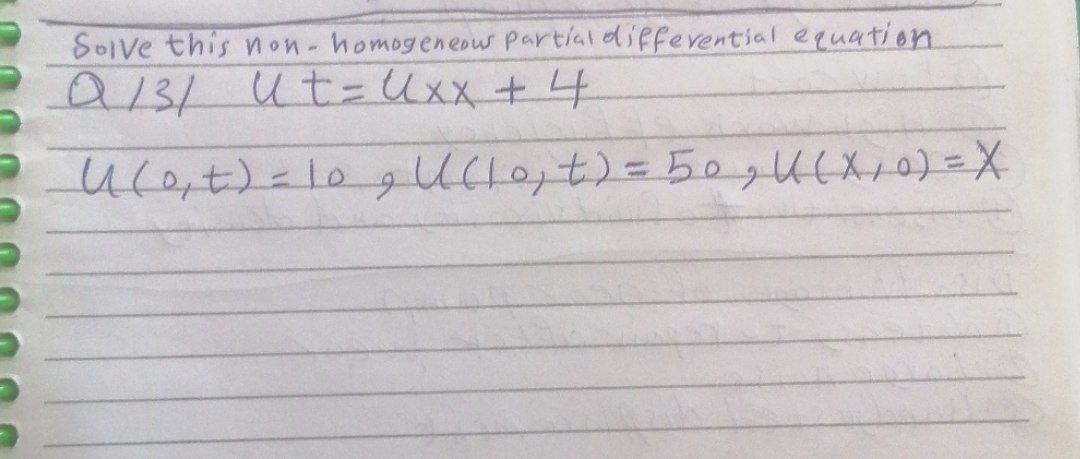 Solve this non-homogeneous partial differential equation
Q 13/ Ut = Uxx + 4
U(0,t) = 10 , U(10,t) = 50 , U(X,0) = X